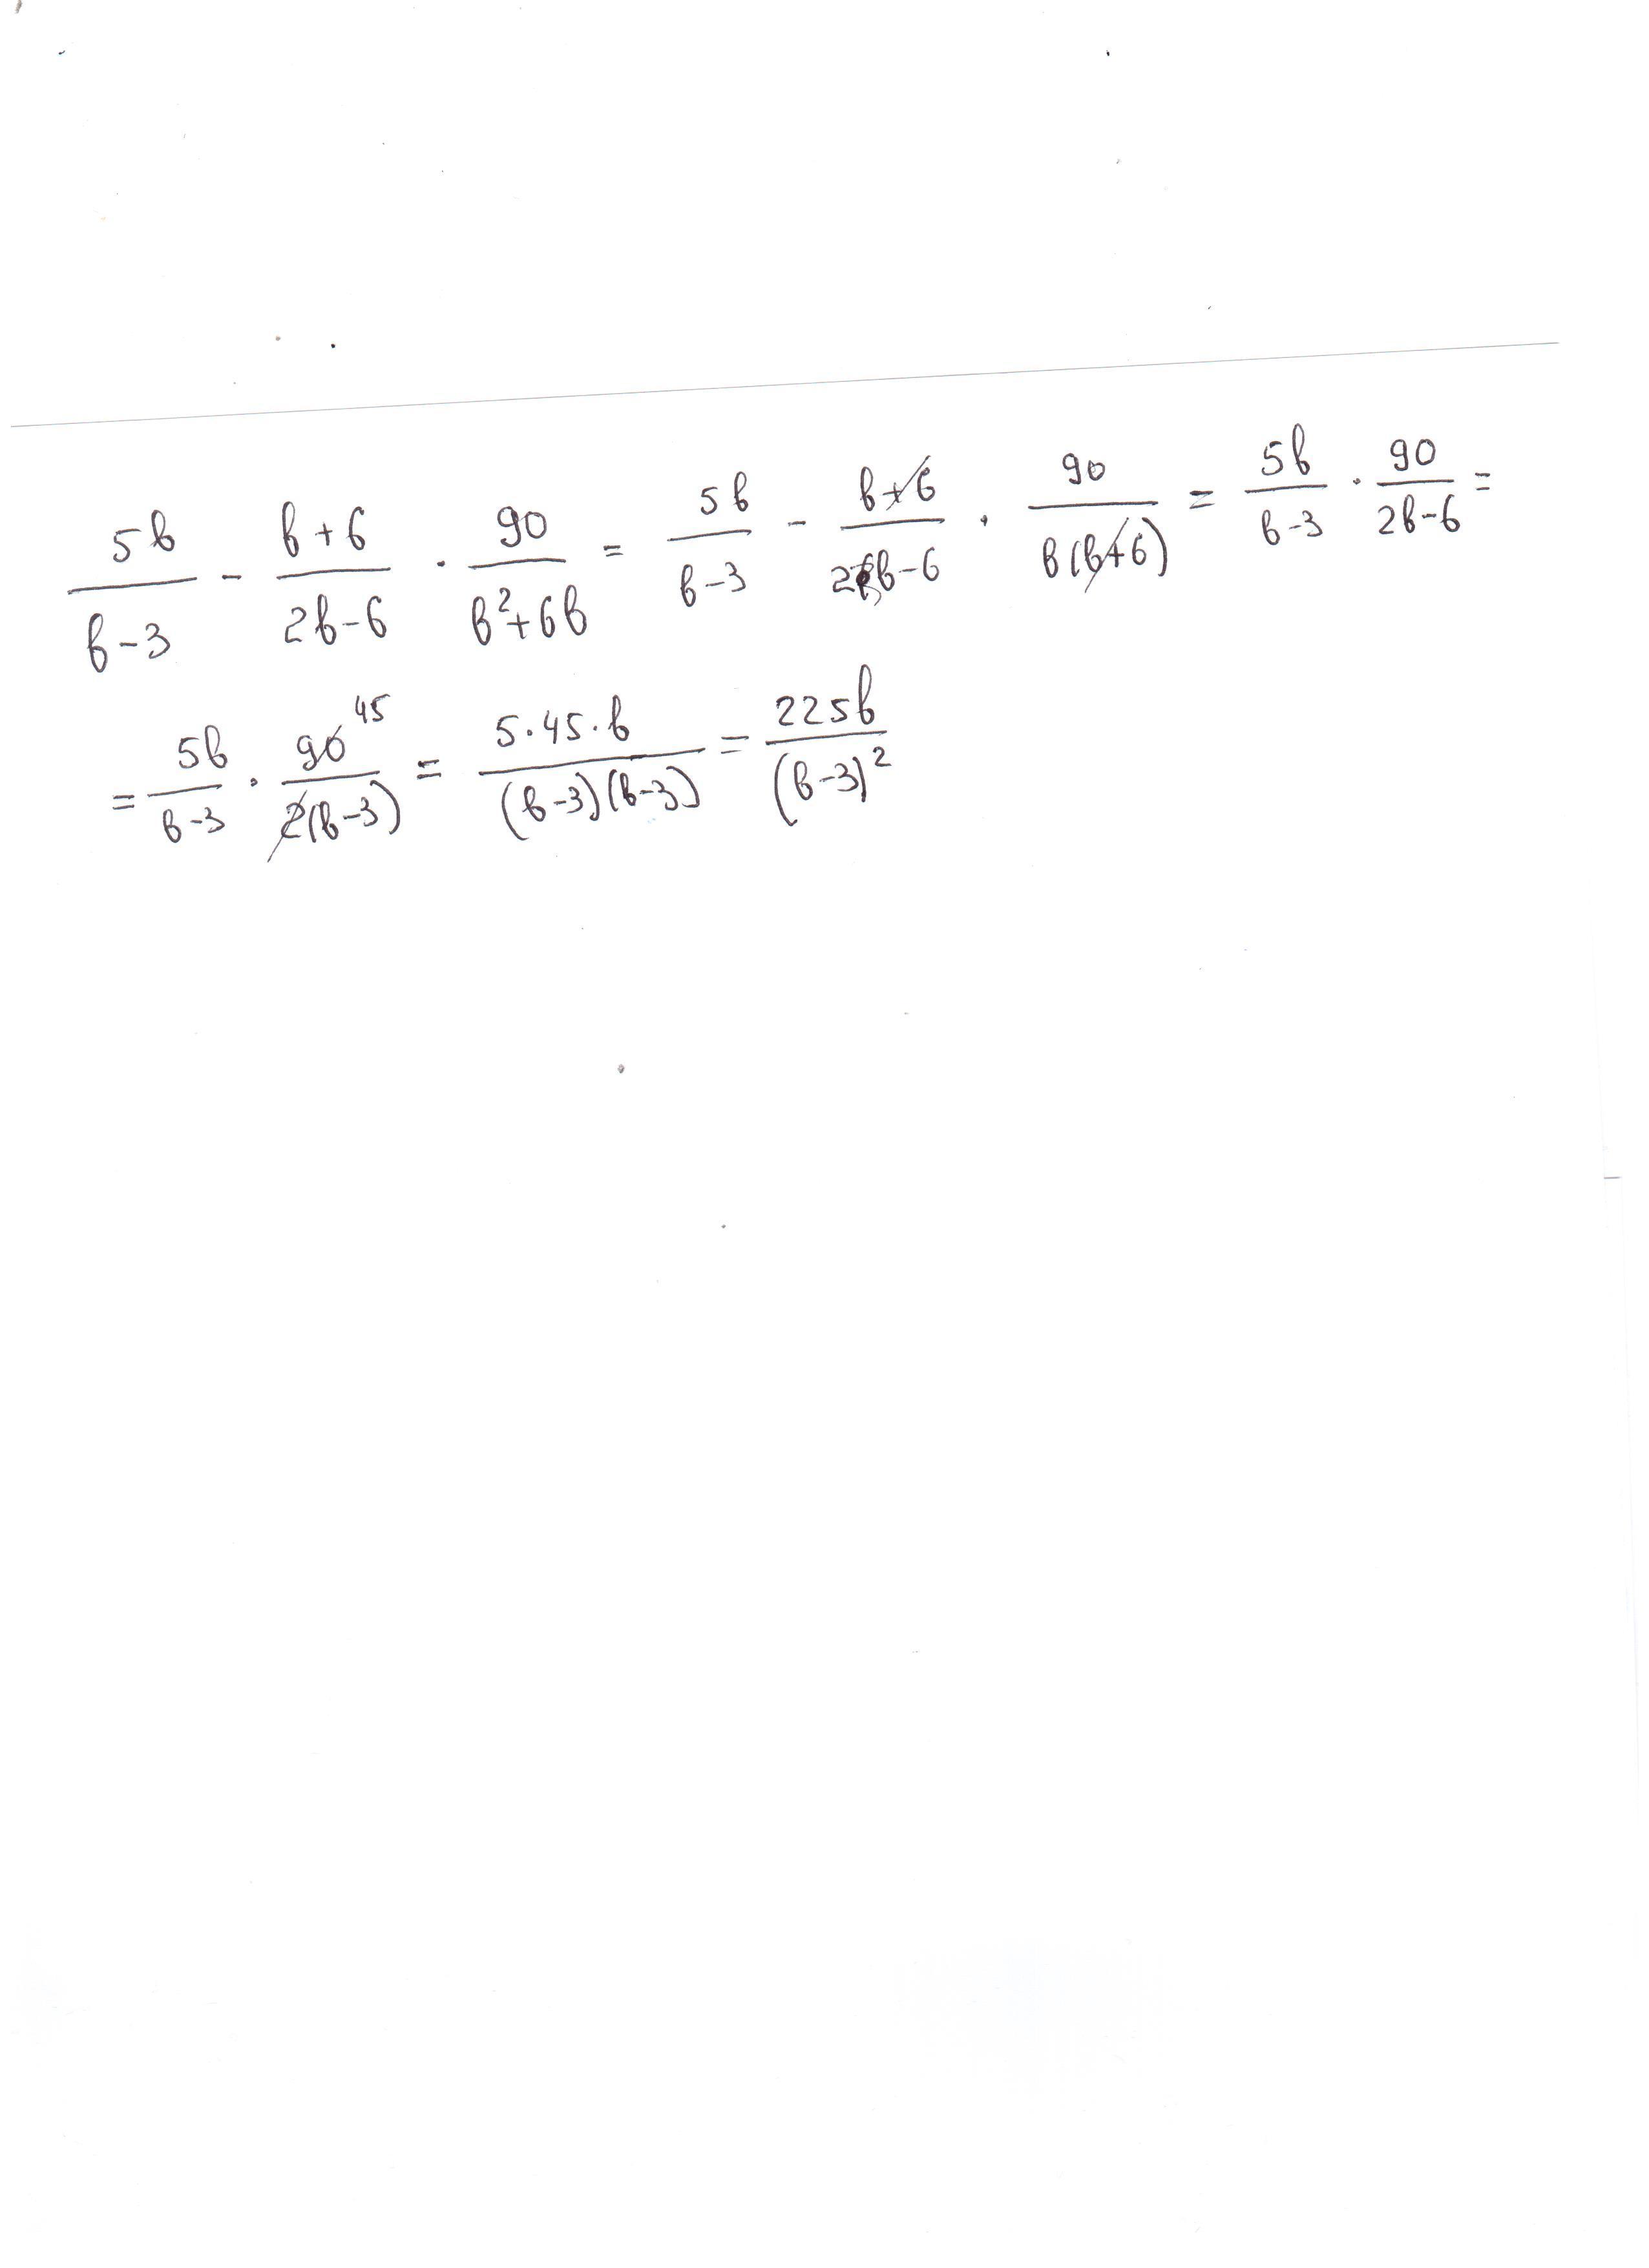 5b/(b-3) - (b+6)/(2b-6) · 90/(b²+6b) = 5b/(b-3) - (b+6)/(2b-6) · 90/(b(b+6)) = 5b/(b-3) · 90/(2b-6) =
= 5b/(b-3) · 90 45/(2(b-3)) = 5·45·b/((b-3)(b-3)) = 225b/(b-3)²